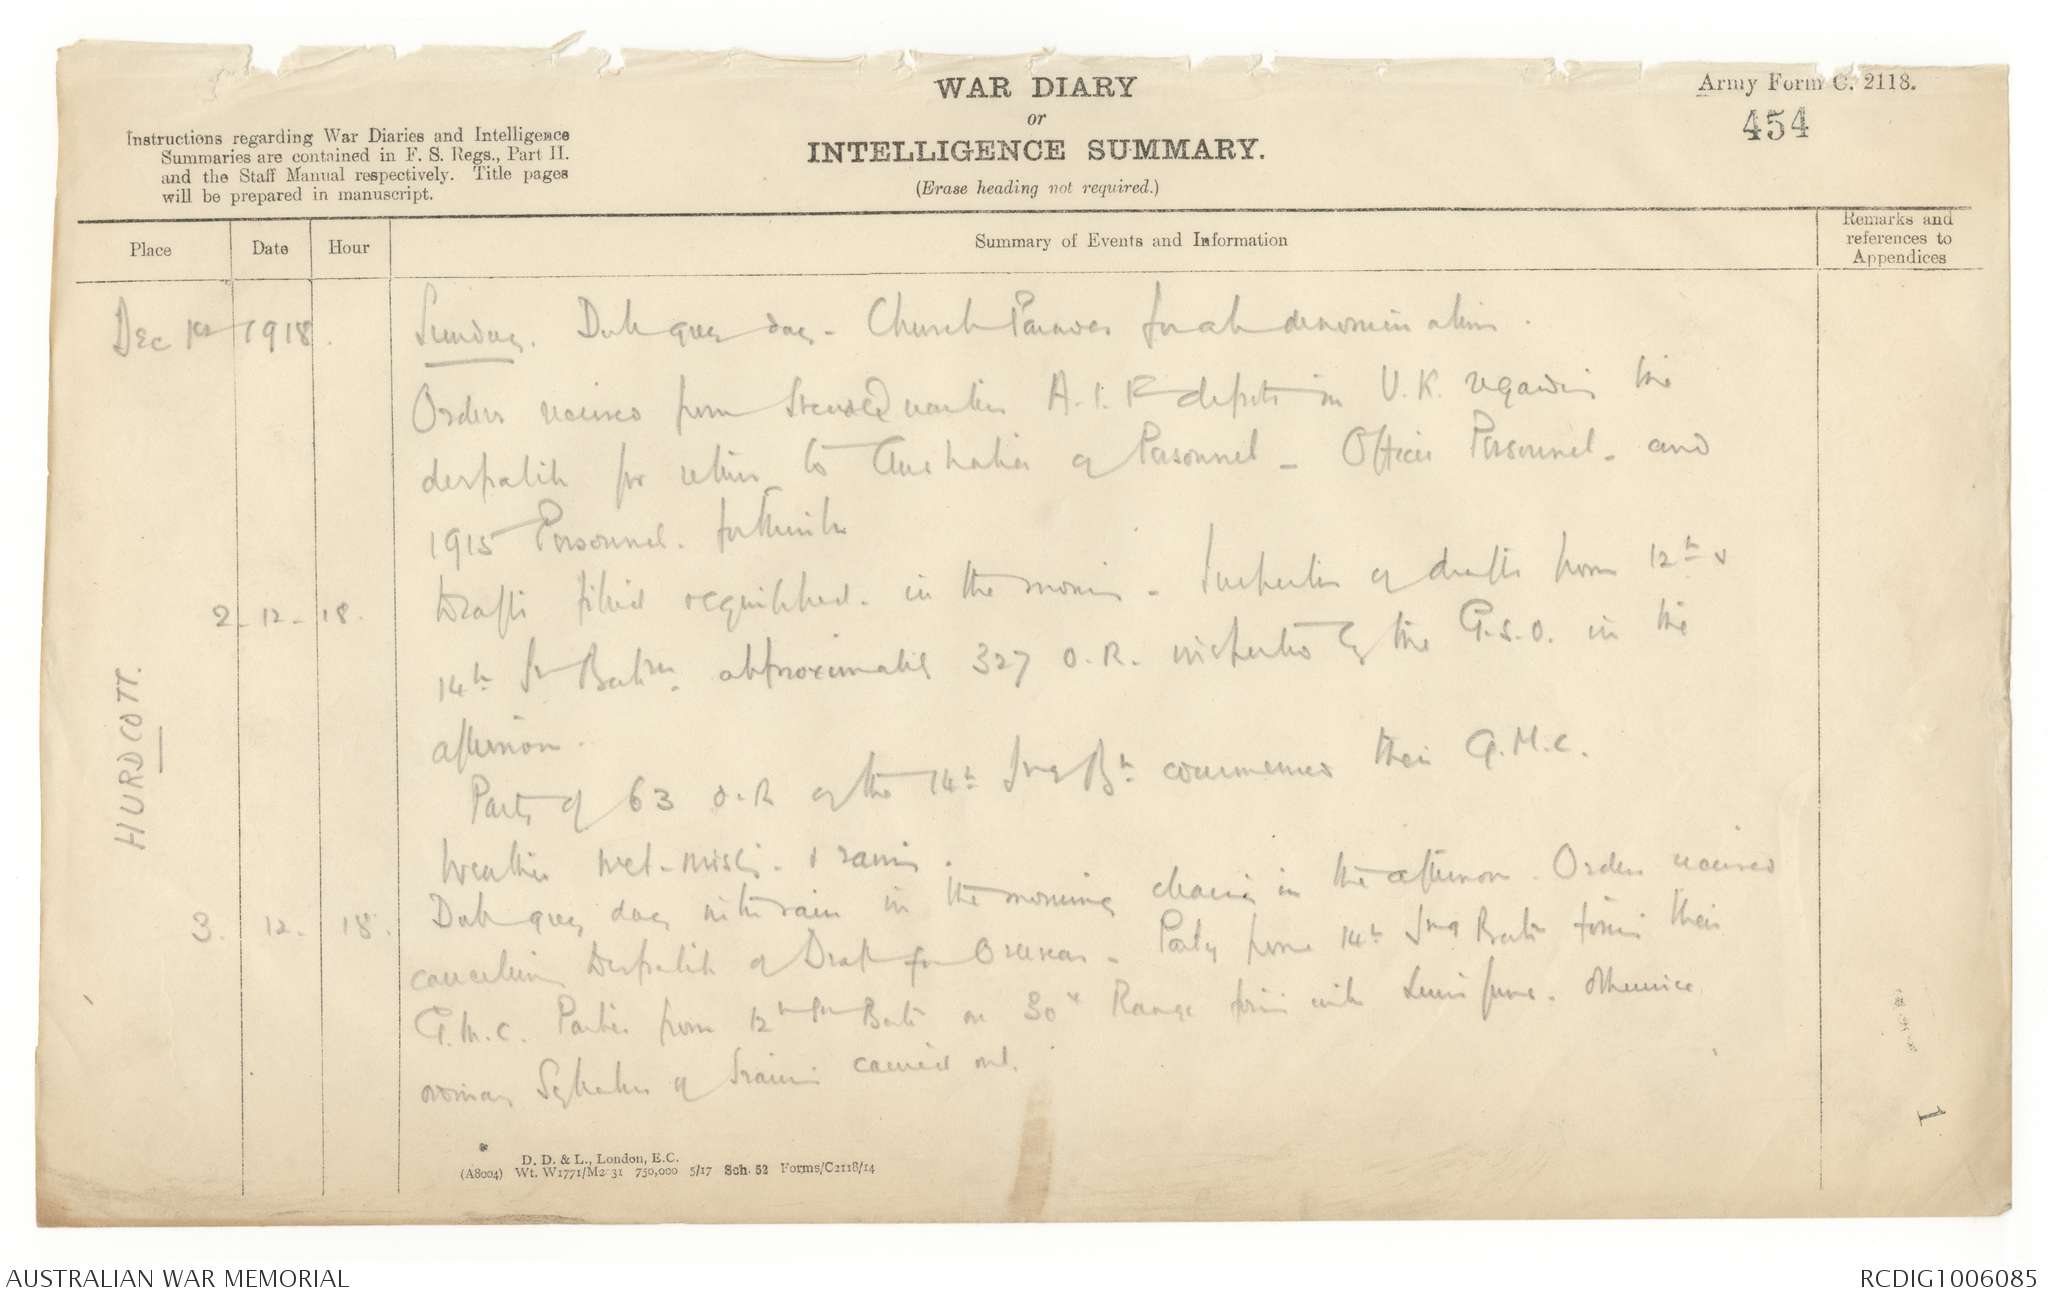 WAR DIARY
or
INTELLIGENCE SUMMARY.
(Erase heading not required.)
Army Form C. 2118.
454
Instructions regarding War Diaries and Intelligence
Summaries are contained in F. S. Regs., Part II.
and the Staff Manual respectively. Title pages
will be prepared in manuscript.
Place
Date
Hour
Summary of Events and Information
Remarks and
references to
Appendices
HURDCOTT.
Dec 1st 1918.
Sunday. Dull grey day - Church Parades for all denominations.
Orders received from Headquarters A.I.F depots in U.K. regarding the
despatch for return to Australia of Personnel - Officer Personnel - and
1915 Personnel. forthwith
2-12-18.
Drafts fitted equipped. in the morning - Inspection of drafts from 12th &
14th Trg Battn. approximately 327 O.R. inspected by the G.S.O. in the
afternoon.
Party of 63 O.R of the 14th Trg Bn commenced their G.M.C.
Weather wet-misty. & rainy.
3. 12. 18.
Dull grey day with rain in the morning clearing in the afternoon. Orders received
cancelling Despatch of Draft for Overseas. Party from 14th Trg Battn firing their
G.M.C. Parties from 12th Trg Battn on 30x Range firing with Lewis guns. Otherwise
ordinary Syllabus of Training carried out.
1
D. D. & L., London, E.C.
(A8004) Wt. W1771/M2 31 750,000 5/17 Sch. 52 Forms/C2118/14
AUSTRALIAN WAR MEMORIAL
RCDIG1006085